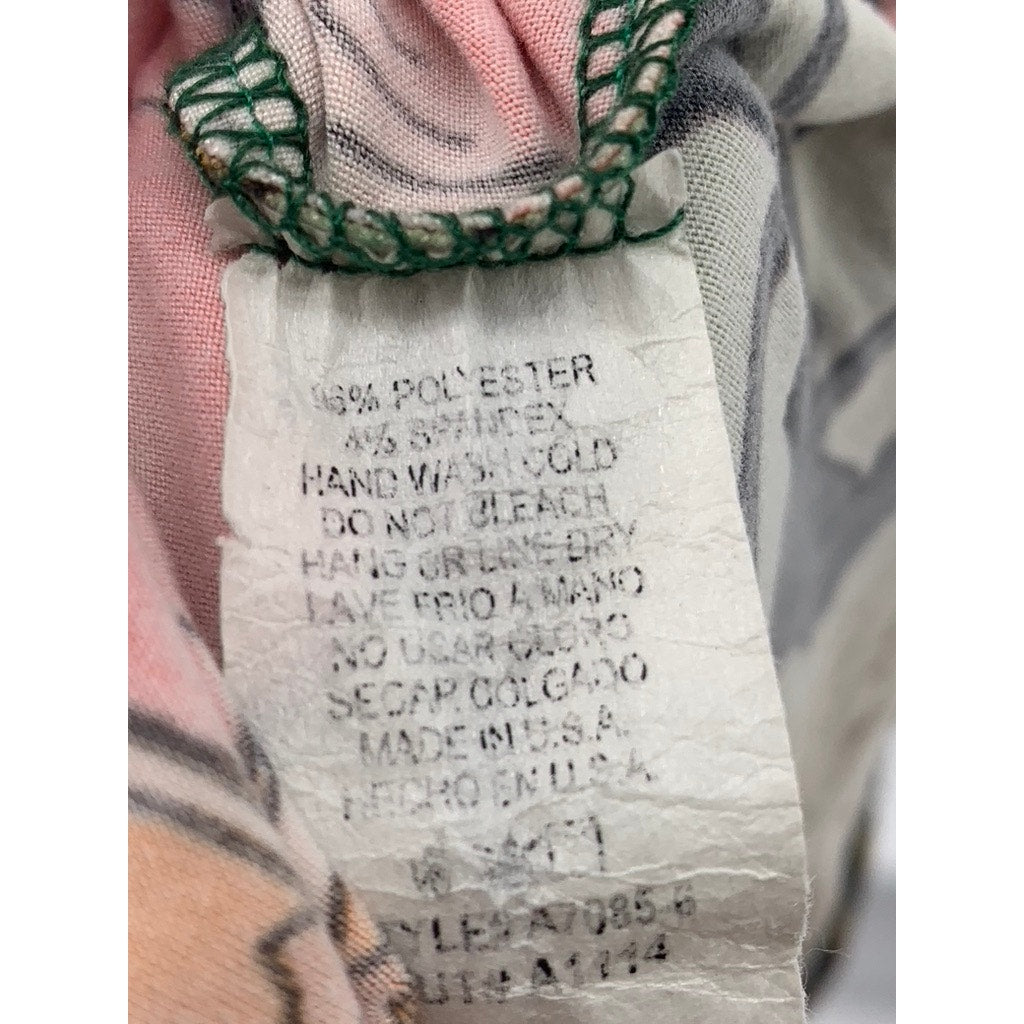 96% POLYESTER
4% SPANDEX
HAND WASH COLD
DO NOT BLEACH
HANG OR LINE DRY
LAVE FRIO A MANO
NO USAR CLORO
SECAR COLGADO
MADE IN U.S.A.
HECHO EN U.S.A.
A7085-6
A1114